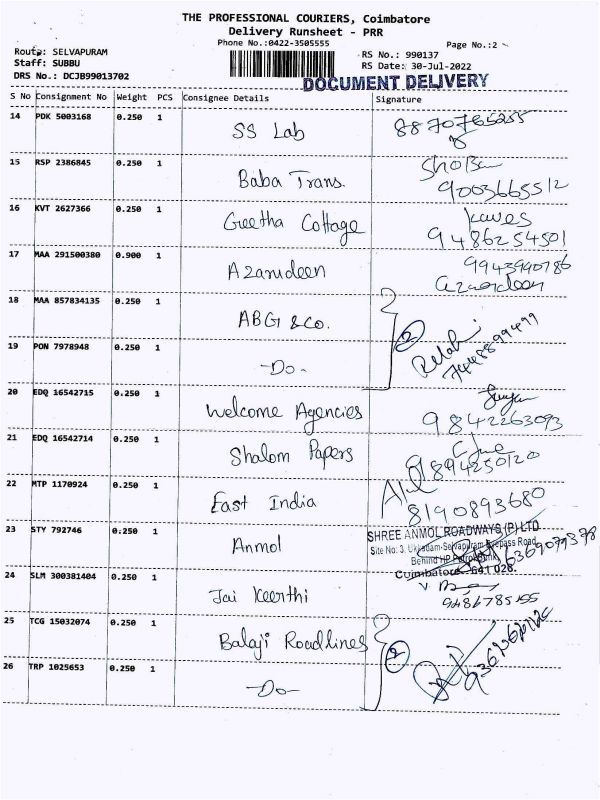 THE PROFESSIONAL COURIERS, Coimbatore
Delivery Runsheet - PRR
Phone No.:0422-3505555
Page No.:2
Route: SELVAPURAM
RS No.: 990137
Staff: SUBBU
RS Date: 30-Jul-2022
DRS No.: DCJB99013702
DOCUMENT DELIVERY
S No Consignment No Weight PCS Consignee Details Signature
14 PDK 5003168 0.250 1 SS Lab 8870765255
15 RSP 2386845 0.250 1 Baba Trans. 9003665512
16 KVT 2627366 0.250 1 Geetha Cottage 9486254501
17 MAA 291500380 0.900 1 Azarudeen 9943990786
18 MAA 857834135 0.250 1 ABG & Co. 2
19 PON 7978948 0.250 1 -Do-
20 EDQ 16542715 0.250 1 Welcome Agencies 9842263093
21 EDQ 16542714 0.250 1 Shalom Papers 9894250120
22 MTP 1170924 0.250 1 East India 8190893680
23 STY 792746 0.250 1 Anmol
SHREE ANMOL ROADWAYS (P) LTD
Site No: 3, Ukkadam-Selvapuram Byepass Road,
Behind HP Petrol Bunk,
Coimbatore - 641 028.
24 SLM 300381404 0.250 1 Jai Keerthi
25 TCG 15032074 0.250 1 Balaji Roadlines 2
26 TRP 1025653 0.250 1 -Do-